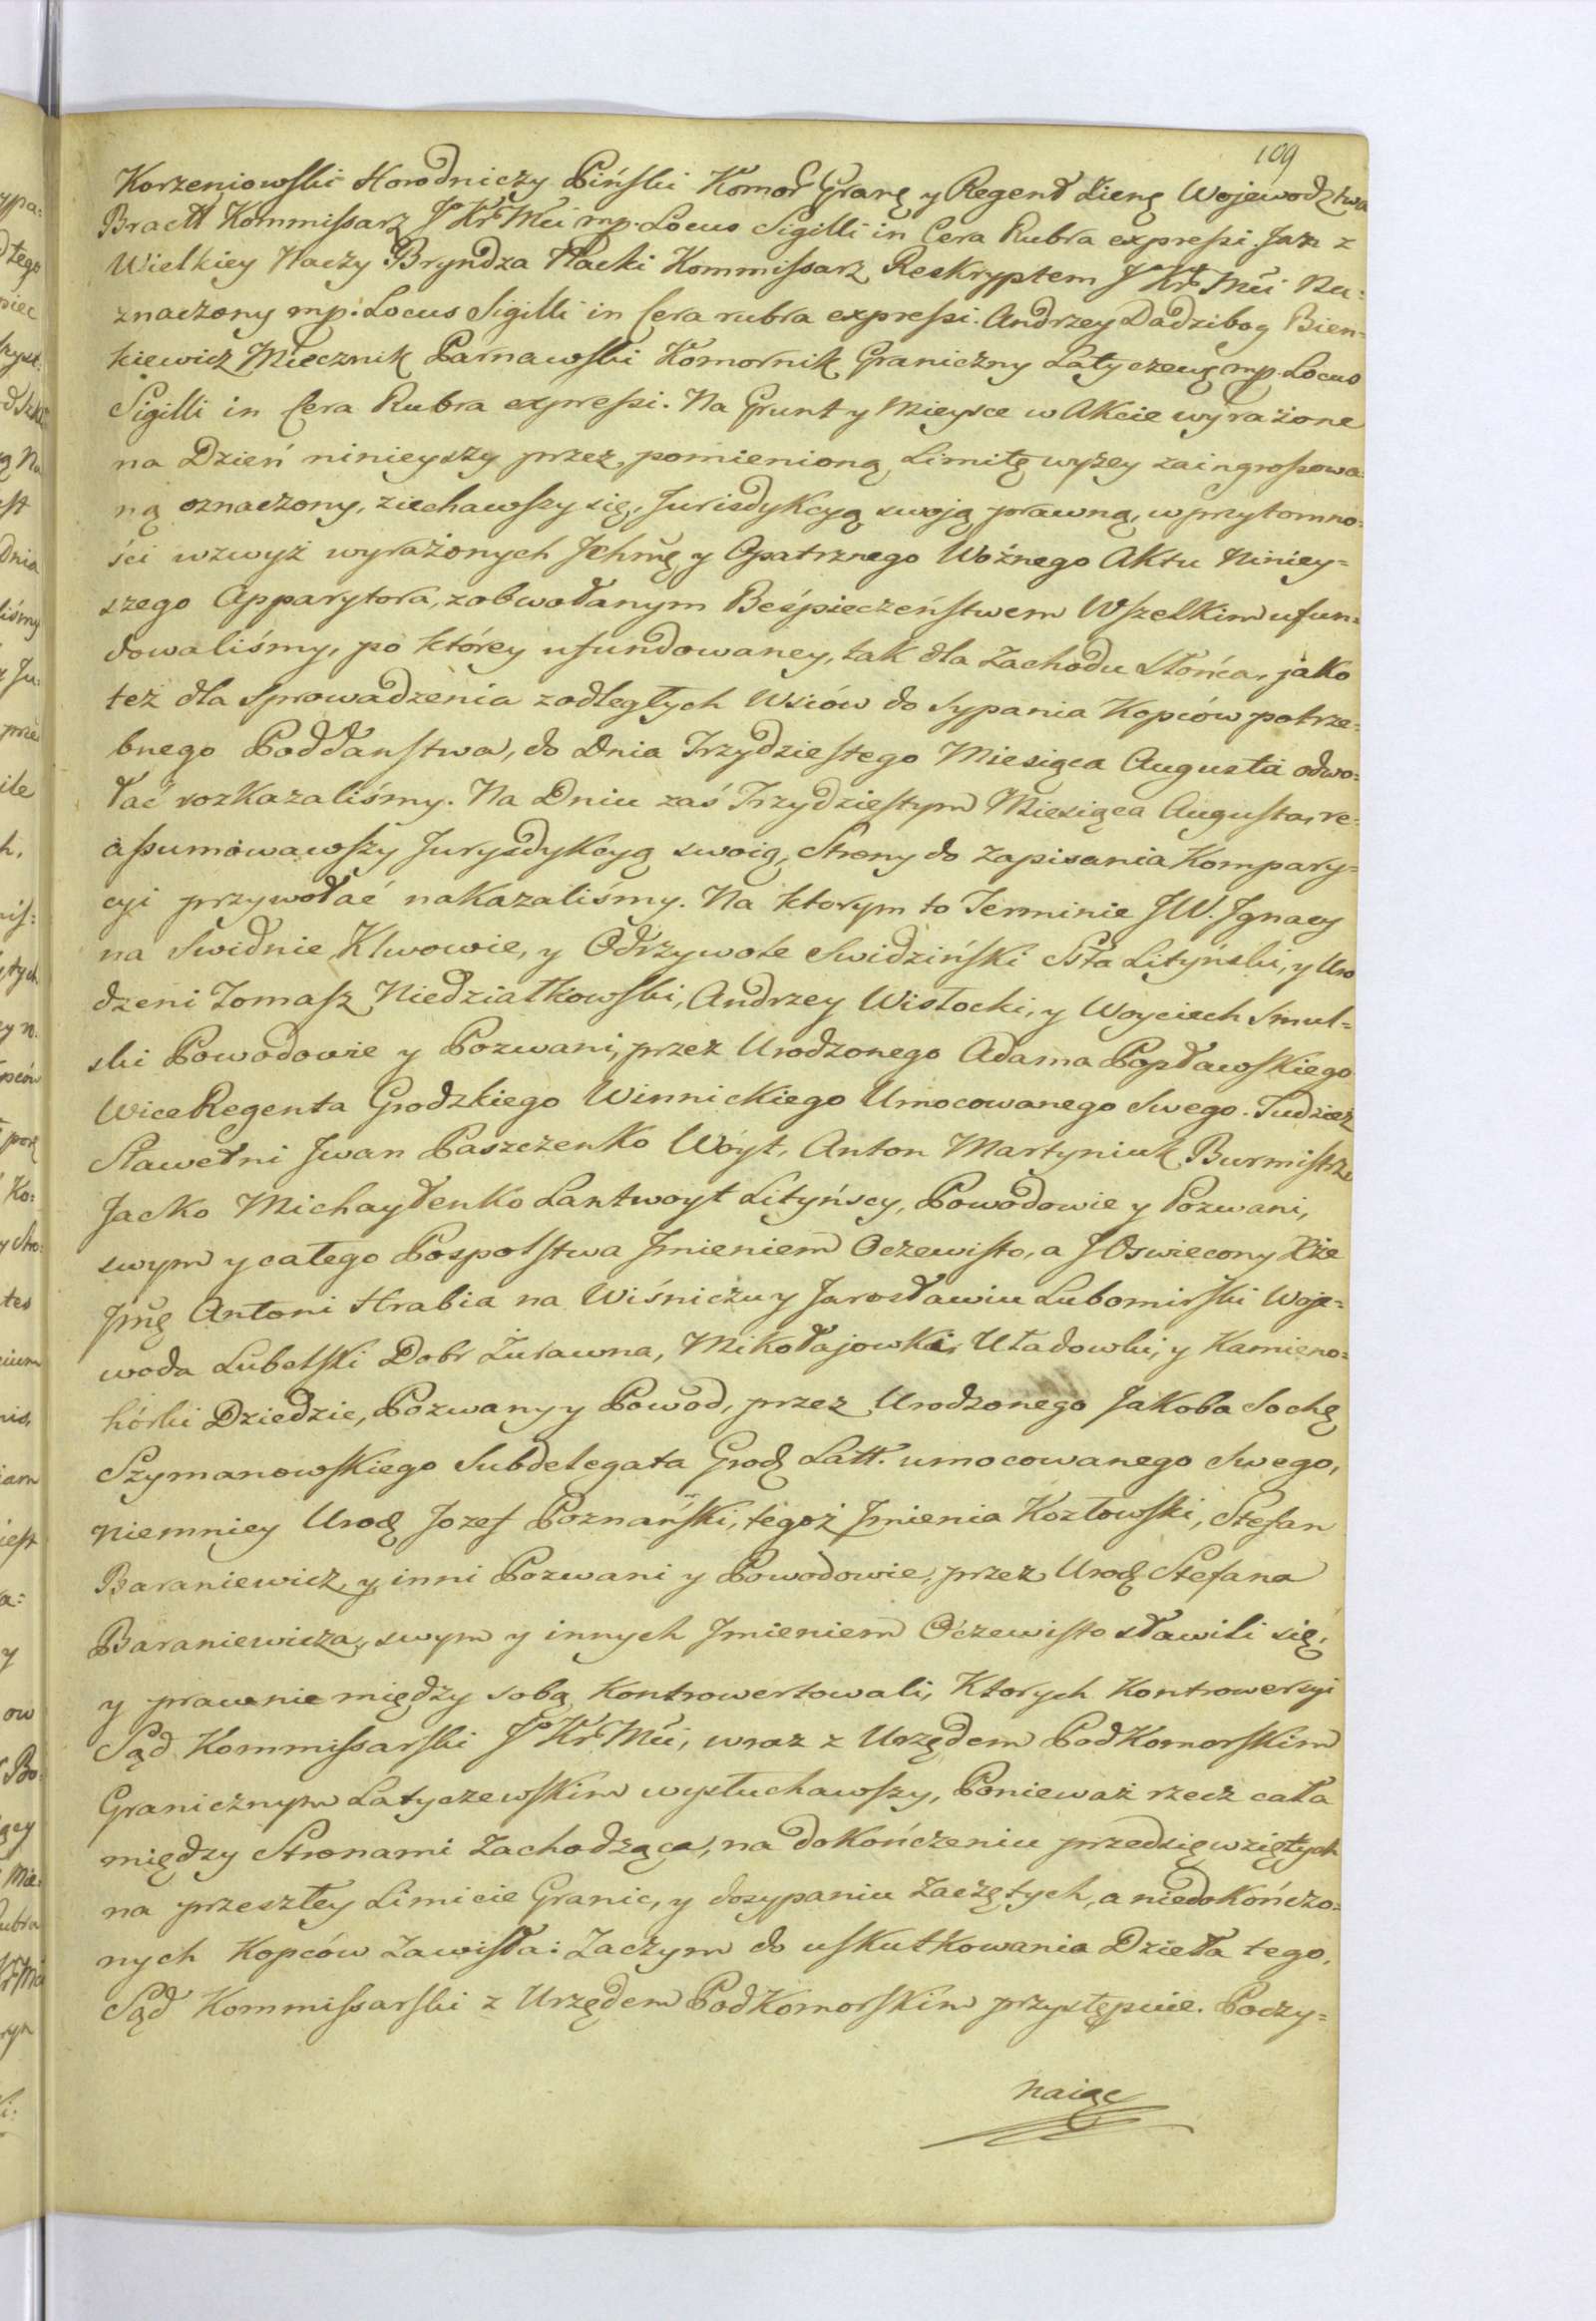 109
Korzeniowski Horodniczy Piński Komor Granę y Regent Zieng Wojewodztwa
Bractt Kommissarz J Kr Mci mp. Locus Sigilli in Cera Rubra expressi. Jan z
Wielkiey Haczy Bryndza Hacki Kommissarz Reskryptem J Kr Mci Na-
znaczony mp. Locus Sigilli in Cera rubra expressi. Andrzey Dadzibog Bien-
kiewicz Miecznik Parnawski Komornik Graniczny Latyczewę mp. Locus
Sigilli in Cera Rubra expressi. Na Grunt y Mieysce w Akcie wyrażone
na Dzień ninieyszy przez pomienioną Limitę wyżey zaingrossowa-
ną oznaczony, ziechawszy się, Jurisdykcyą swoją prawną, w przytomno-
ści wzwyż wyrażonych Jchmę y Opatrznego Woźnego Aktu Niniey=
szego Apparytora, z obwołanym Beśpieczeństwem Wszelkim ufun=
dowaliśmy, po którey ufundowaney, tak dla Zachodu Słońca, jako
też dla Sprowadzenia z odległych Wsiów do sypania Kopców potrze=
bnego Poddaństwa, do Dnia Trzydziestego Miesiąca Augusta odwo=
łać rozkazaliśmy. Na Dniu zaś Trzydziestym Miesiąca Augusta, re-
assumowawszy Jurysdykcyą swoią, Strony do Zapisania Kompary=
cyi przywołać nakazaliśmy. Na ktorym to Terminie JW. Jgnacy
na Swidnie Klwowie, y Odrzywole Swidziński Stta Lityński, y Uro
dzeni Tomasz Niedziałkowski, Andrzey Wisłocki, y Woyciech Smul=
ski Powodowie y Pozwani, przez Urodzonego Adama Popławskiego
Wice Regenta Grodzkiego Winnickiego Umocowanego Swego. Tudzież
Sławetni Jwan Paszczenko Wóyt, Anton Martyniuk Burmistrz
Jacko Michayłenko Lantwoyt Lityńscy, Powodowie y Pozwani,
swym y całego Pospolstwa Jmieniem Oczewisto, a JOswiecony Xże
Jmę Antoni Hrabia na Wiśniczu y Jarosławiu Lubomirski Woje=
woda Lubelski Dobr Żurawna, Mikołajowki, Uładowki, y Kamieno=
hórki Dziedzic, Pozwany y Powod, przez Urodzonego Jakoba Sochę
Szymanowskiego Subdelegata Grodę Latt. umocowanego Swego,
niemniey Urodę Jozef Poznański, tegoż Jmienia Kozłowski, Stefan
Baraniewicz, y inni Pozwani y Powodowie, przez Urodę Stefana
Baraniewicza, swym y innych Jmieniem Oczewisto stawili się,
y prawnie między sobą Kontrowertowali, Ktorych Kontrowersyi
Sąd Kommissarski J Kr Mci, wraz z Urzędem PodKomorskim
Granicznym Latyczewskim wysłuchawszy, Ponieważ rzecz cała
między Stronami Zachodząca, na dokończeniu przedsięwziętych
na przeszłey Limicie Granic, y dosypaniu Zaczętych, a niedokończo=
nych Kopców Zawisła: Zaczym do uskutkowania Dzieła tego,
Sąd Kommissarski z Urzędem PodKomorskim przystępuie. Poczy=
naiąc